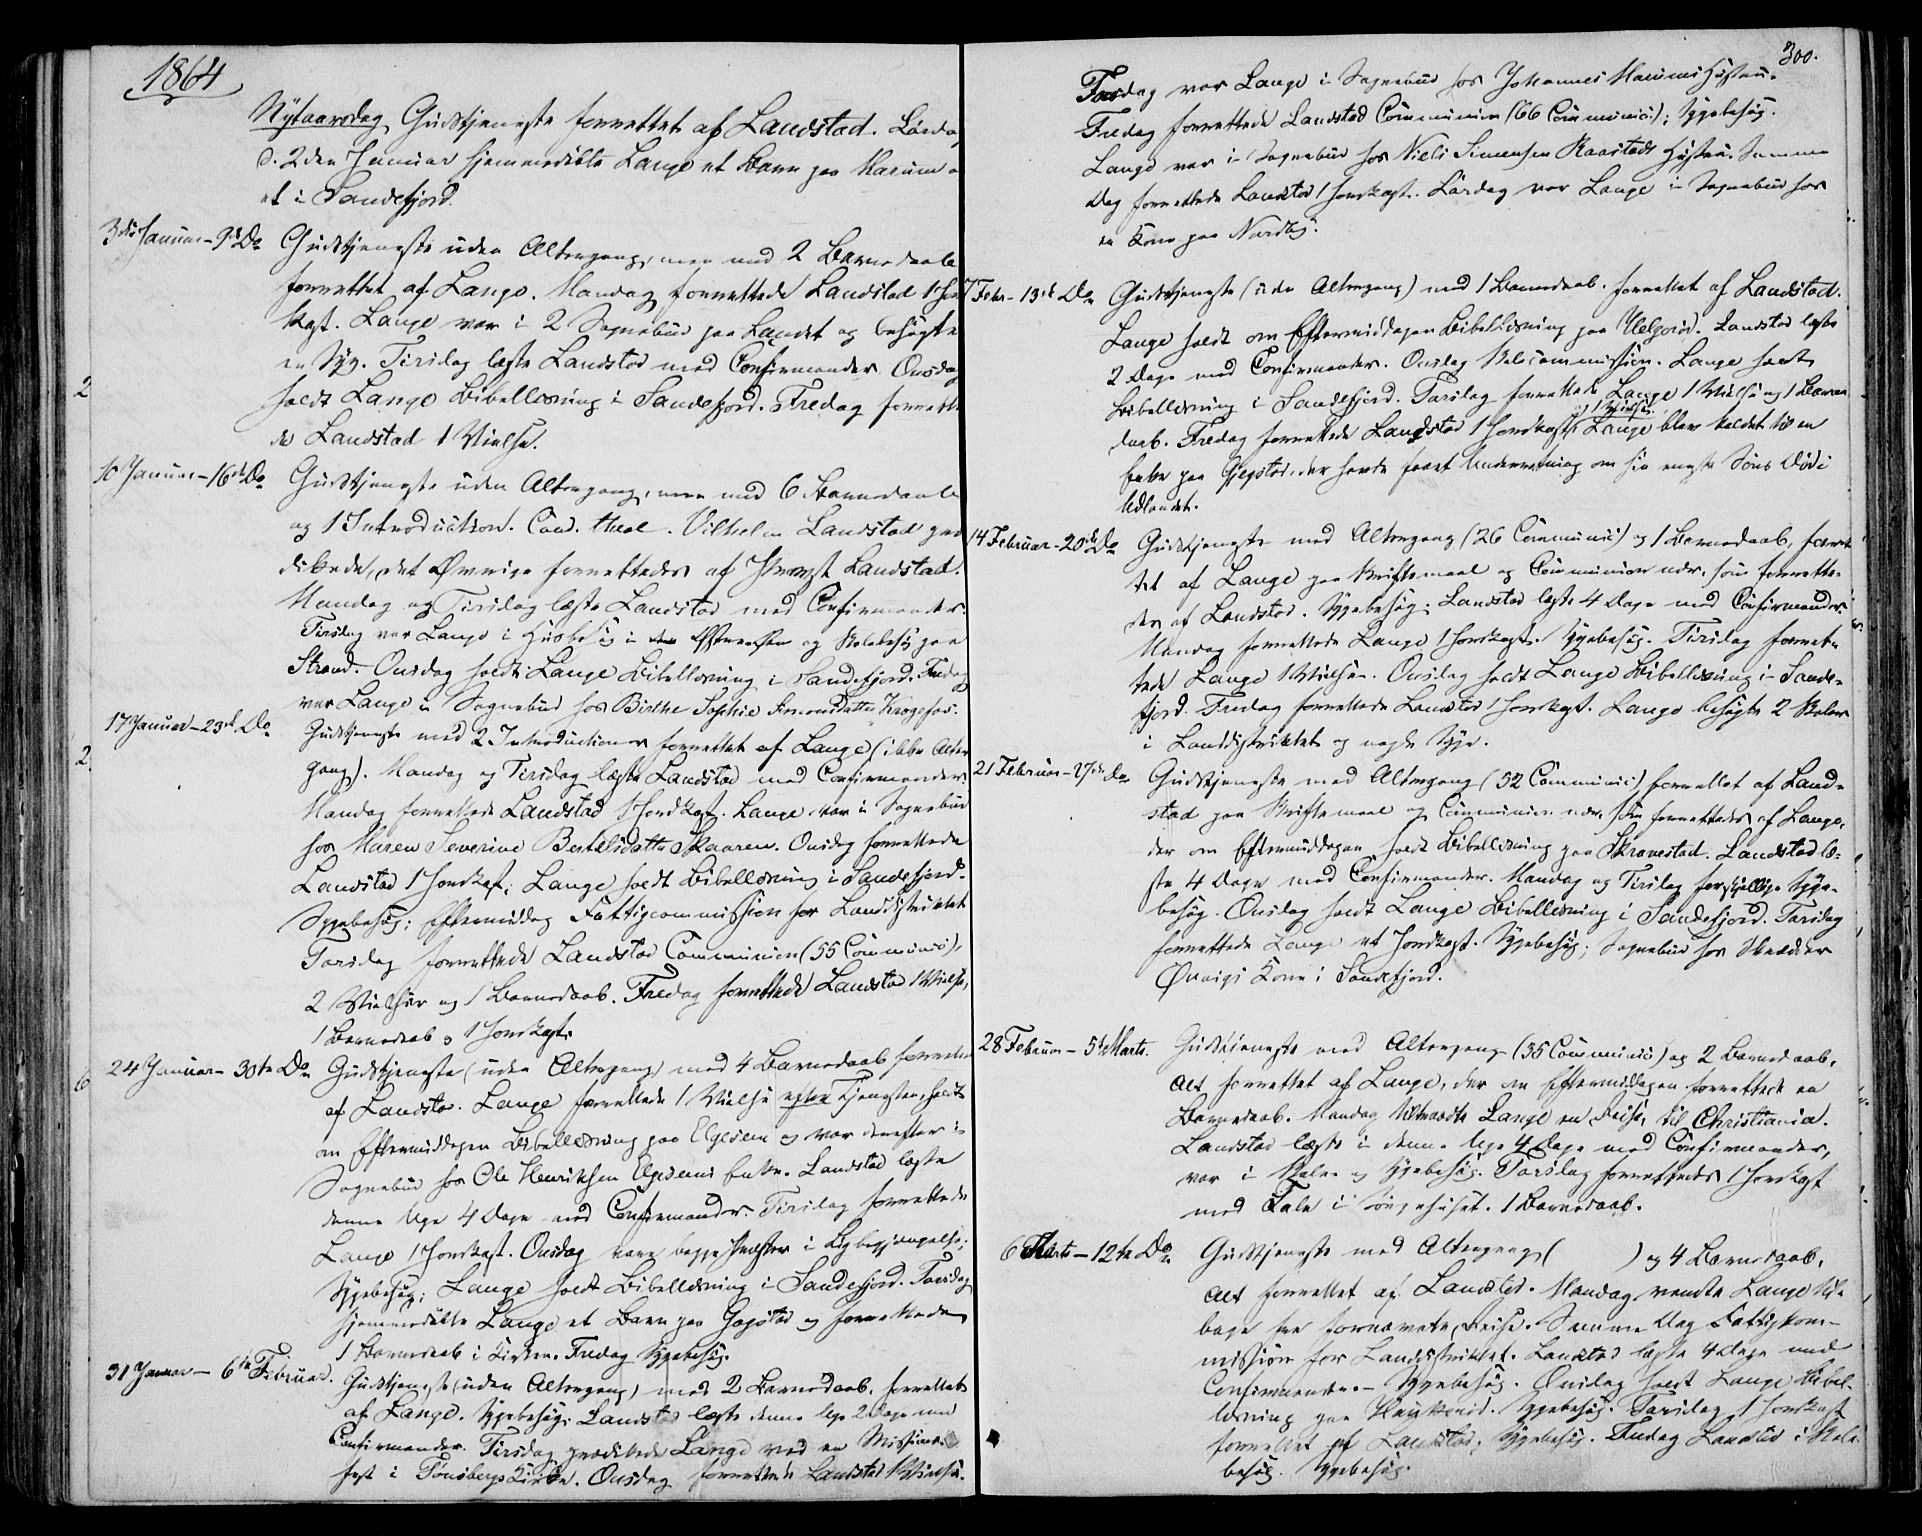 1864
Nytaarsdag Gudstjeneste forrettet af Landstad. Lørda
d. 2den Januar hjemmedøbte Lange et Barn paa Marum o
et i Sandefjord.
3die Januar – 9de Do
Gudstjeneste uden Altergang, men med 2 Barnedaab
forrettet af Lange. Mandag forrettede Landstad 1 Jord
kast. Lange var i 2 Sognebud paa Landet og besøgte
en Syg. Tirsdag læste Landstad med Confirmander. Onsdag
holdt Lange Bibellæsning i Sandefjord. Fredag forrette
de Landstad 1 Vielse.
10 Januar – 16de Do
Gudstjeneste uden Altergang, men med 6 Barnedaab
og 1 Introduction. Cand. theol. Vilhelm Landstad præ
dikede, det Øvrige forrettedes af Provst Landstad.
Mandag og Tirsdag læste Landstad med Confirmander.
Tirsdag var Lange i Husbesøg i og Skolebesøg paa
Strand. Onsdag holdt Lange Bibellæsning i Sandefjord. Fredag
var Lange i Sognebud hos Birthe Sophie Simonsdatter Krogefos.
17 Januar – 23de Do
Gudstjeneste med 2 Introductioner forrettet af Lange (ikke Alter
gang). Mandag og Tirsdag læste Landstad med Confirmander.
Mandag forrettede Landstad 1 Jordkast. Lange var i Sognebud
hos Maren Severine Bertelsdatter Skaaren. Onsdag forrettede
Landstad 1 Jordkast; Lange holdt Bibellæsning i Sandefjord.
Sygebesøg; Eftermiddag Fattigcommission for Landdistriktet
Torsdag forrettede Landstad Communion (55 Communic.),
2 Vielser og 1 Barnedaab. Fredag forrettede Landstad 1 Vielse,
1 Barnedaab og 1 Jordkast.
24 Januar – 30te Do
Gudstjeneste (uden Altergang) med 4 Barnedaab forrettet
af Landstad. Lange forrettede 1 Vielse efter Tjenesten, holdt
om Eftermiddagen Bibellæsning paa Elgesem og var derefter i
Sognebud hos Ole Henriksen Elgesems Enke. Landstad læste
denne Uge 4 Dage med Confirmander. Tirsdag forrettede
Lange 1 Jordkast. Onsdag vare begge Præster i Ligbegjængelse;
Sygebesøg; Lange holdt Bibellæsning i Sandefjord. Torsdag
hjemmedøbte Lange et Barn paa Gogstad og forrettede
1 Barnedaab i Kirken. Fredag Sygebesøg.
31 Januar – 6te Februar.
Gudstjeneste (uden Altergang) med 2 Barnedaab, forrettet
af Lange. Sygebesøg; Landstad læste denne Uge 2 Dage med
Confirmander. Tirsdag prædikede Lange ved en Missions
fest i Tønsbergs Kirke. Onsdag forrettede Landstad 1 Vielse.
2
2
6
300.
Torsdag var Lange i Sognebud hos Johannes Marums Hustru.
Fredag forrettede Landstad Communion (66 Communic.); Sygebesøg.
Lange var i Sognebud hos Niels Simensen Raastads Hustru. Samme
Dag forrettede Landstad 1 Jordkast. Lørdag var Lange i Sognebud hos
en Kone paa Nordby.
7 Febr. – 13de Do
Gudstjeneste (uden Altergang) med 1 Barnedaab, forrettet af Landstad.
Lange holdt om Eftermiddagen Bibellæsning paa Helgerød. Landstad læste
2 Dage med Confirmander. Onsdag Skolecommission. Lange holdt
Bibellæsning i Sandefjord. Torsdag forrettede Lange 1 Vielse og 1 Barne
daab. Fredag forrettede Landstad 1 Jordkast og 1 Vielse. Lange blev kaldet til en
Enke paa Gjegstad, der havde faaet Underretning om sin eneste Søns Død i
Udlandet.
14 Februar – 20de Do
Gudstjeneste med Altergang (26 Communic.) og 1 Barnedaab, forret
tet af Lange paa Skriftemaal og Communion nær, som forrette-
des af Landstad. Sygebesøg; Landstad læste 4 Dage med Confirmander.
Mandag forrettede Lange 1 Jordkast. Sygebesøg. Tirsdag forret-
tede Lange 1 Vielse. Onsdag holdt Lange Bibellæsning i Sande-
fjord. Fredag forrettede Landstad 1 Jordkast. Lange besøgte 2 Skoler
i Landdistriktet og nogle Syge.
21 Februar – 27de Do
Gudstjeneste med Altergang (52 Communic.) forrettet af Land-
stad paa Skriftemaal og Communion nær, som forrettedes af Lange,
der om Eftermiddagen holdt Bibellæsning paa Skravestad. Landstad læ-
ste 4 Dage med Confirmander. Mandag og Tirsdag forskjellige Syge-
besøg. Onsdag holdt Lange Bibellæsning i Sandefjord. Torsdag
forrettede Lange et Jordkast. Sygebesøg; Sognebud hos Skrædder
Kone i Sandefjord.
28 Februar – 5te Marts.
Gudstjeneste med Altergang (35 Communic.) og 2 Barnedaab,
Alt forrettet af Lange, der om Eftermiddagen forrettede en
Barnedaab. Mandag tiltraadte Lange en Reise til Christiania.
Landstad læste i denne Uge 4 Dage med Confirmander,
var i Skole- og Sygebesøg. Torsdag forrettedes 1 Jordkast
med Tale i Sørgehuset. 1 Barnedaab.
6 Marts – 12te Do
Gudstjeneste med Altergang ( ) og 4 Barnedaab,
Alt forrettet af Landstad. Mandag vendte Lange til-
bage fra fornævnte Reise. Samme Dag Fattigkom-
mission for Landdistriktet. Landstad læste 4 Dage med
Confirmander. – Sygebesøg. Onsdag holdt Lange Bibel-
læsning paa. Sygebesøg. Torsdag 1 Jordkast
forrettet af Landstad; Sygebesøg. Fredag Landstad i Skole
besøg. Sygebesøg.